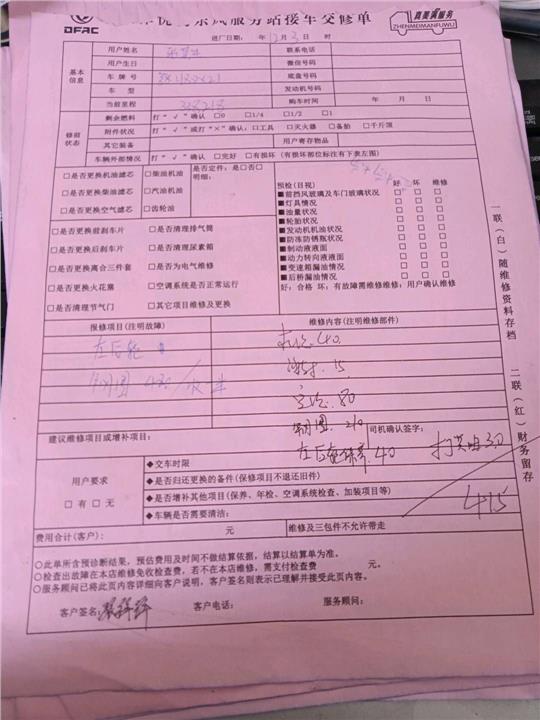 东风服务站接车交修单
DFAC
真美满服务
ZHENMEIMANFUWU
进厂日期： 年12月3日 时
基本信息
用户姓名 联系电话
用户生日 微信号码
车牌号 底盘号码
车型 发动机号码
当前里程 购车时间 年 月 日
修前状态
剩余燃料 打“√”确认 □0 □1/4 □1/2 □1
附件状况 打“√”或打“×”确认：□工具 □灭火器 □备胎 □千斤顶
其它装备 用户寄存物品
车辆外部情况 打“√”确认 □完好 □有损坏（有损坏部位标注有下表左图）
□是否更换机油滤芯 □柴油机油 是否定件：是□否□
明细：
□是否更换柴油滤芯 □汽油机油
□是否更换空气滤芯 □齿轮油
□是否更换前刹车片 □是否清理排气筒
□是否更换后刹车片 □是否清理尿素箱
□是否更换离合三件套 □是否为电气维修
□是否更换火花塞 □空调系统是否正常运行
□是否清理节气门 □其它项目维修及更换
预检(目视) 好 坏 维修
■前挡风玻璃及车门玻璃状况 □ □ □
■灯具情况 □ □ □
■油量状况 □ □ □
■轮胎状况 □ □ □
■发动机机油状况 □ □ □
■防冻防锈瓶状况 □ □ □
■制动液液面 □ □ □
■动力转向液液面 □ □ □
■变速箱漏油情况 □ □ □
■后桥漏油情况 □ □ □
好：合格 坏：有故障需维修维修：用户确认维修
报修项目(注明故障) 维修内容(注明维修部件)
左后轮
40
钢圈
15
80
钢圈 210
左后轮保养 40
30
415
建议维修项目或增补项目： 司机确认签字：
用户要求
□有 □无
◆交车时限
◆是否归还更换的备件（保修项目不退还旧件）
◆是否增补其他项目(保养、年检、空调系统检查、加装项目等)
◆车辆是否需要清洁：
费用合计(客户)： 元 维修及三包件不允许带走
○此单所含预诊断结果，预估费用及时间不做结算依据，结算以结算单为准。
○检查出故障在本店维修免收检查费，若不在本店维修，需支付检查费 元。
○服务顾问已将此页内容详细向客户说明，客户签名则表示已理解并接受此页内容。
客户签名： 客户电话： 服务顾问：
一联（白）随维修资料存档
二联（红）财务留存